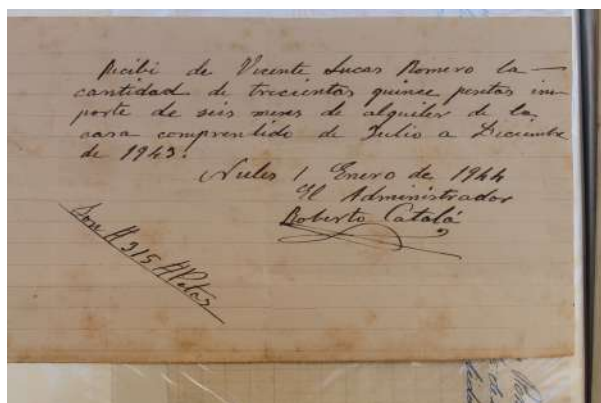 Recibi de Vicente Lucas Romero la —
cantidad de trecientas quince pesetas im-
porte de seis meses de alquiler de la
casa comprendido de Julio a Diciembre
de 1943.
Nules 1 Enero de 1944
El Administrador
Roberto Catalá
Son # 315 # Ptas